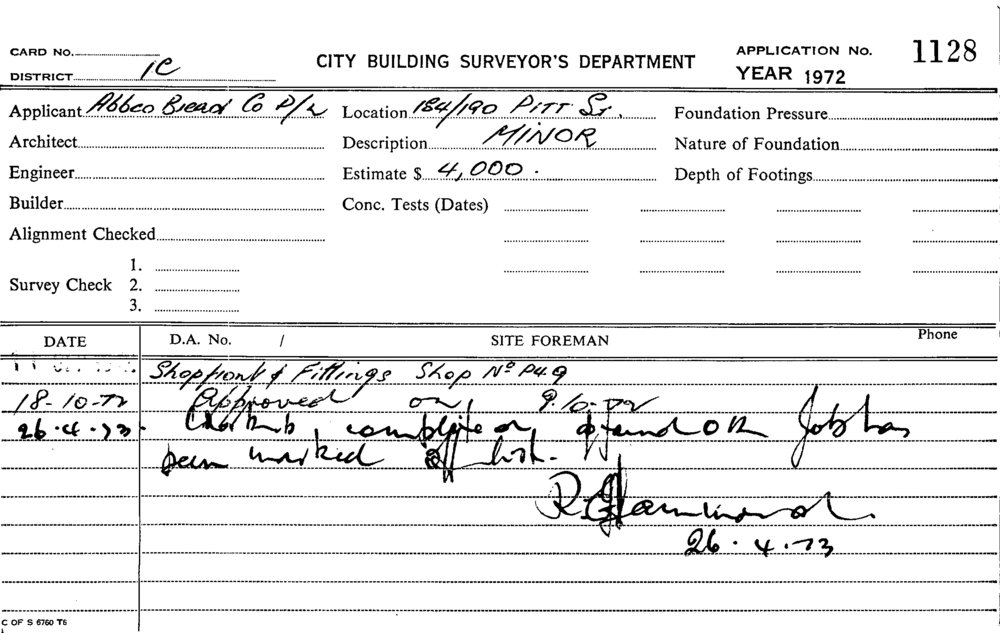 CARD No.
DISTRICT 1C
CITY BUILDING SURVEYOR'S DEPARTMENT
APPLICATION No. 1128
YEAR 1972
Applicant Abbco Bread Co P/L
Location 184/190 PITT ST.
Foundation Pressure
Architect
Description MINOR
Nature of Foundation
Engineer
Estimate $ 4,000.
Depth of Footings
Builder
Conc. Tests (Dates)
Alignment Checked
Survey Check
1.
2.
3.
DATE
D.A. No. /
SITE FOREMAN
Phone
Shopfront & Fittings Shop No P4.9
18-10-72 Approved on 9.10-72
26.4.73. completed, found OK Job has
been marked off list.
R.G. Hammond.
26.4.73
C OF S 6760 T6